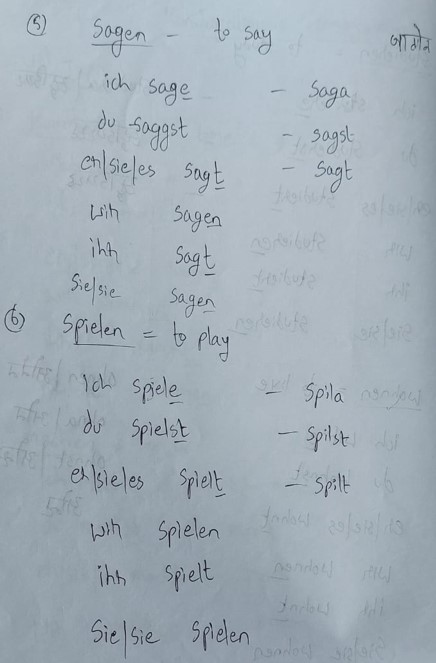 (5) Sagen - to say जागेन
ich sage - Saga
du saggst - sagst
er/sie/es sagt - Sagt
wir sagen
ihr Sagt
Sie/sie sagen
(6) Spielen = to play
ich spiele - Spila
du spielst - Spilst
er/sie/es spielt - Spilt
wir spielen
ihr spielt
Sie/sie spielen